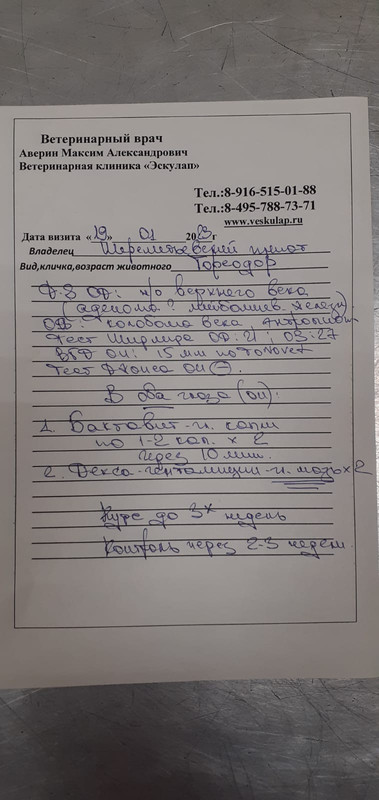 Ветеринарный врач
Аверин Максим Александрович
Ветеринарная клиника «Эскулап»
Тел.:8-916-515-01-88
Тел.:8-495-788-73-71
www.veskulap.ru
Дата визита «19» 01 2023г
Владелец Шереметьевский приют
Вид,кличка,возраст животного Тореадор
Д-з OD: н/о верхнего века
(аденома? мейбомиев. железы)
колобома века, энтропион
Тест Ширмера OD: 21; OS: 27
ВГД OU: 15 мм по Tonovet
Тест Джонса OU (-).
В оба глаза (OU):
1. Бактавит-гл. капли
по 1-2 кап. х 2
через 10 мин.
2. Декса-гентамицин-гл. мазь х 2
Курс до 3х недель
Контроль через 2-3 недели.